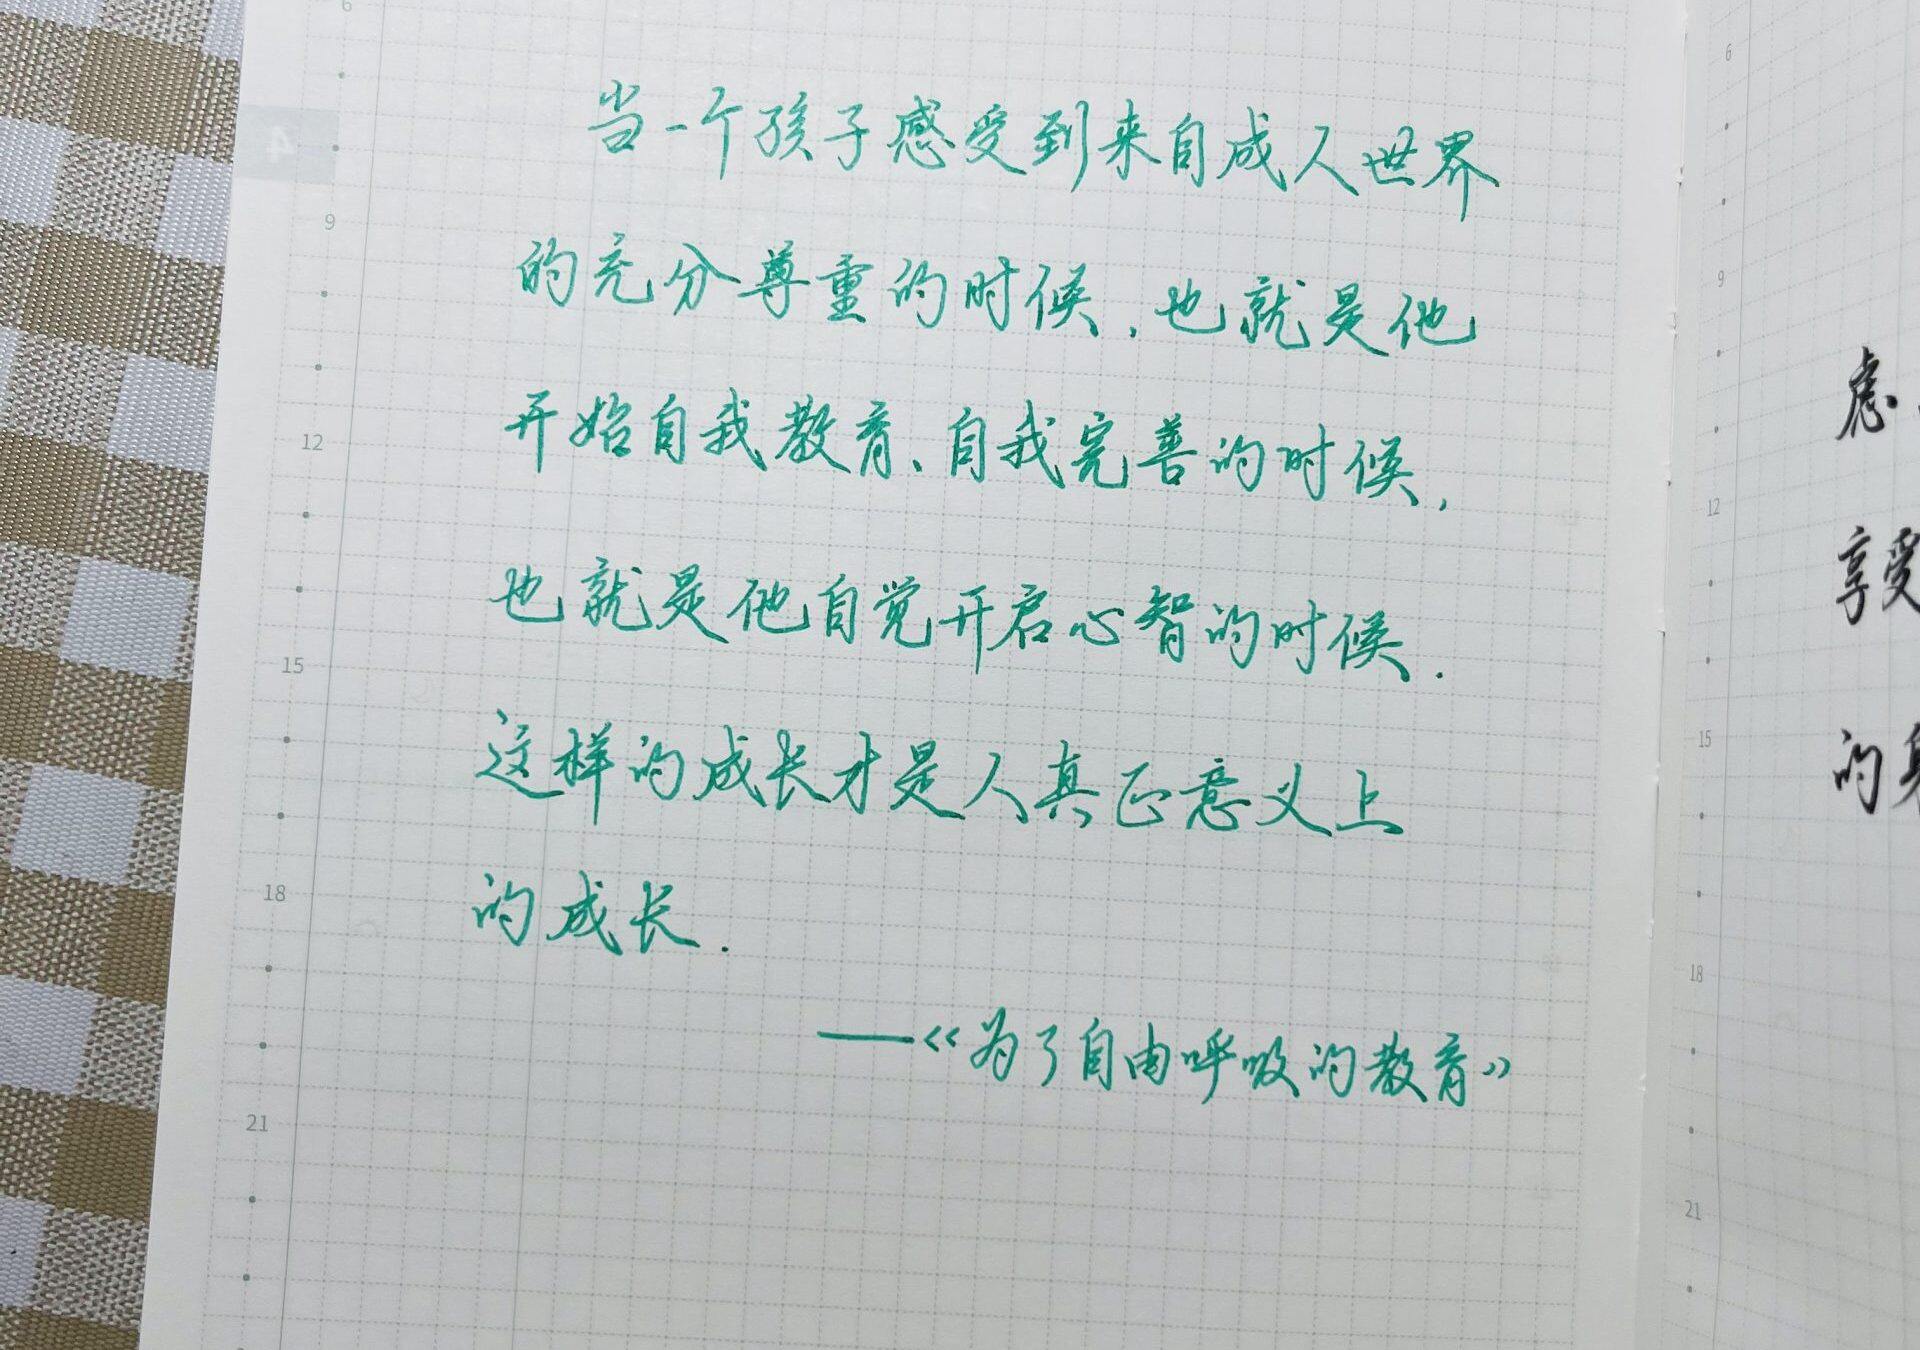 当一个孩子感受到来自成人世界
的充分尊重的时候，也就是他
开始自我教育、自我完善的时候，
也就是他自觉开启心智的时候.
这样的成长才是人真正意义上
的成长.
——《为了自由呼吸的教育》
4
6
9
12
15
18
21
6
9
12
15
18
21
虑
享受
的